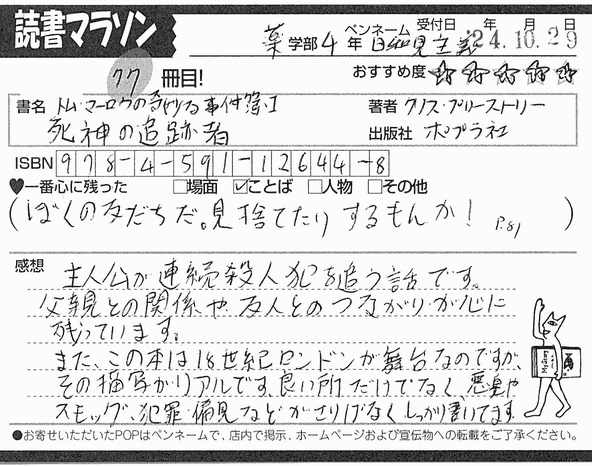 読書マラソン
薬学部4年 ペンネーム 日和見主義 受付日 '24年.10月.29日
77冊目!
おすすめ度☆☆☆☆☆
書名 トム・マーロウの奇妙な事件簿・1
死神の追跡者
著者 クリス・プリーストリー
出版社 ポプラ社
ISBN 978-4-591-12644-8
♥一番心に残った □場面 ☑ことば □人物 □その他
(ぼくの友だちだ。見捨てたりするもんか! P.81)
感想
主人公が連続殺人犯を追う話です。
父親との関係や友人とのつながりが心に
残っています。
また、この本は18世紀ロンドンが舞台なのですが、
その描写がリアルです。良い所だけでなく、悪臭や
スモッグ、犯罪、偏見などがさりげなくしっかり書いてます
●お寄せいただいたPOPはペンネームで、店内で掲示、ホームページおよび宣伝物への転載をご了承ください。